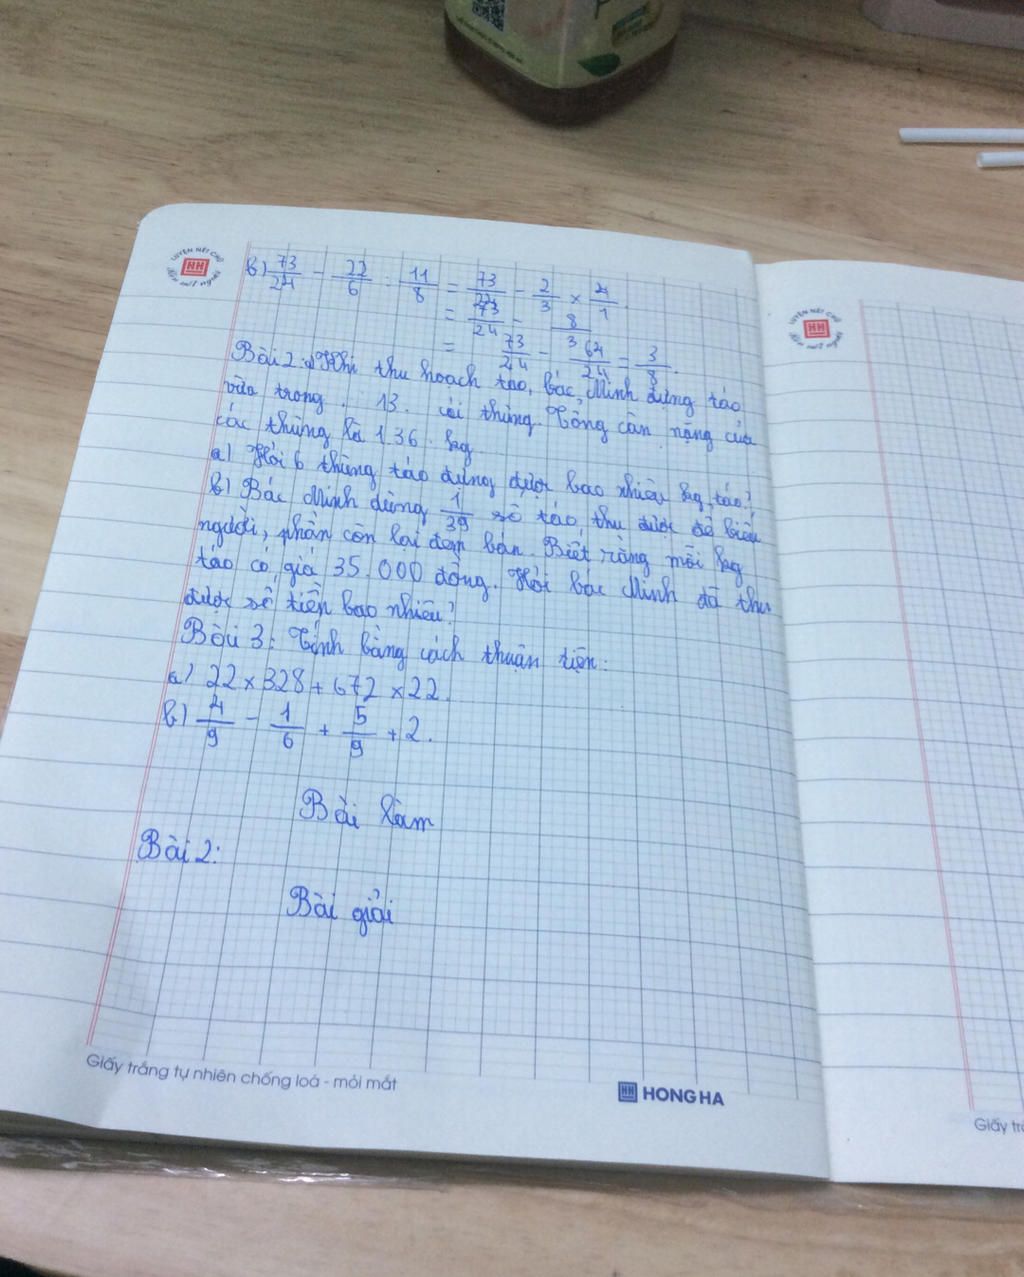 LUYỆN NÉT CHỮ
HH
Rèn nết người
b) 73/24 - 22/6 : 11/8 = 73/24 - 2/3 × 4/1.
= 73/24 - 8/3
= 73/24 - 64/24 = 3/8.
Bài 2: Khi thu hoạch táo, bác Minh đựng táo
vừa trong 13 cái thùng. Tổng cân nặng của
các thùng là 136 kg.
a) Hỏi 6 thùng táo đựng được bao nhiêu kg táo?
b) Bác Minh dùng 1/39 số táo thu được để biếu
người, phần còn lại đem bán. Biết rằng mỗi kg
táo có giá 35.000 đồng. Hỏi bác Minh đã thu
được số tiền bao nhiêu?
Bài 3: Tính bằng cách thuận tiện:
a) 22 × 328 + 672 × 22.
b) 4/9 - 1/6 + 5/9 + 2.
Bài làm
Bài 2:
Bài giải
Giấy trắng tự nhiên chống loá - mỏi mắt
HH HONG HA
LUYỆN NÉT CHỮ
HH
Rèn nết người
Giấy